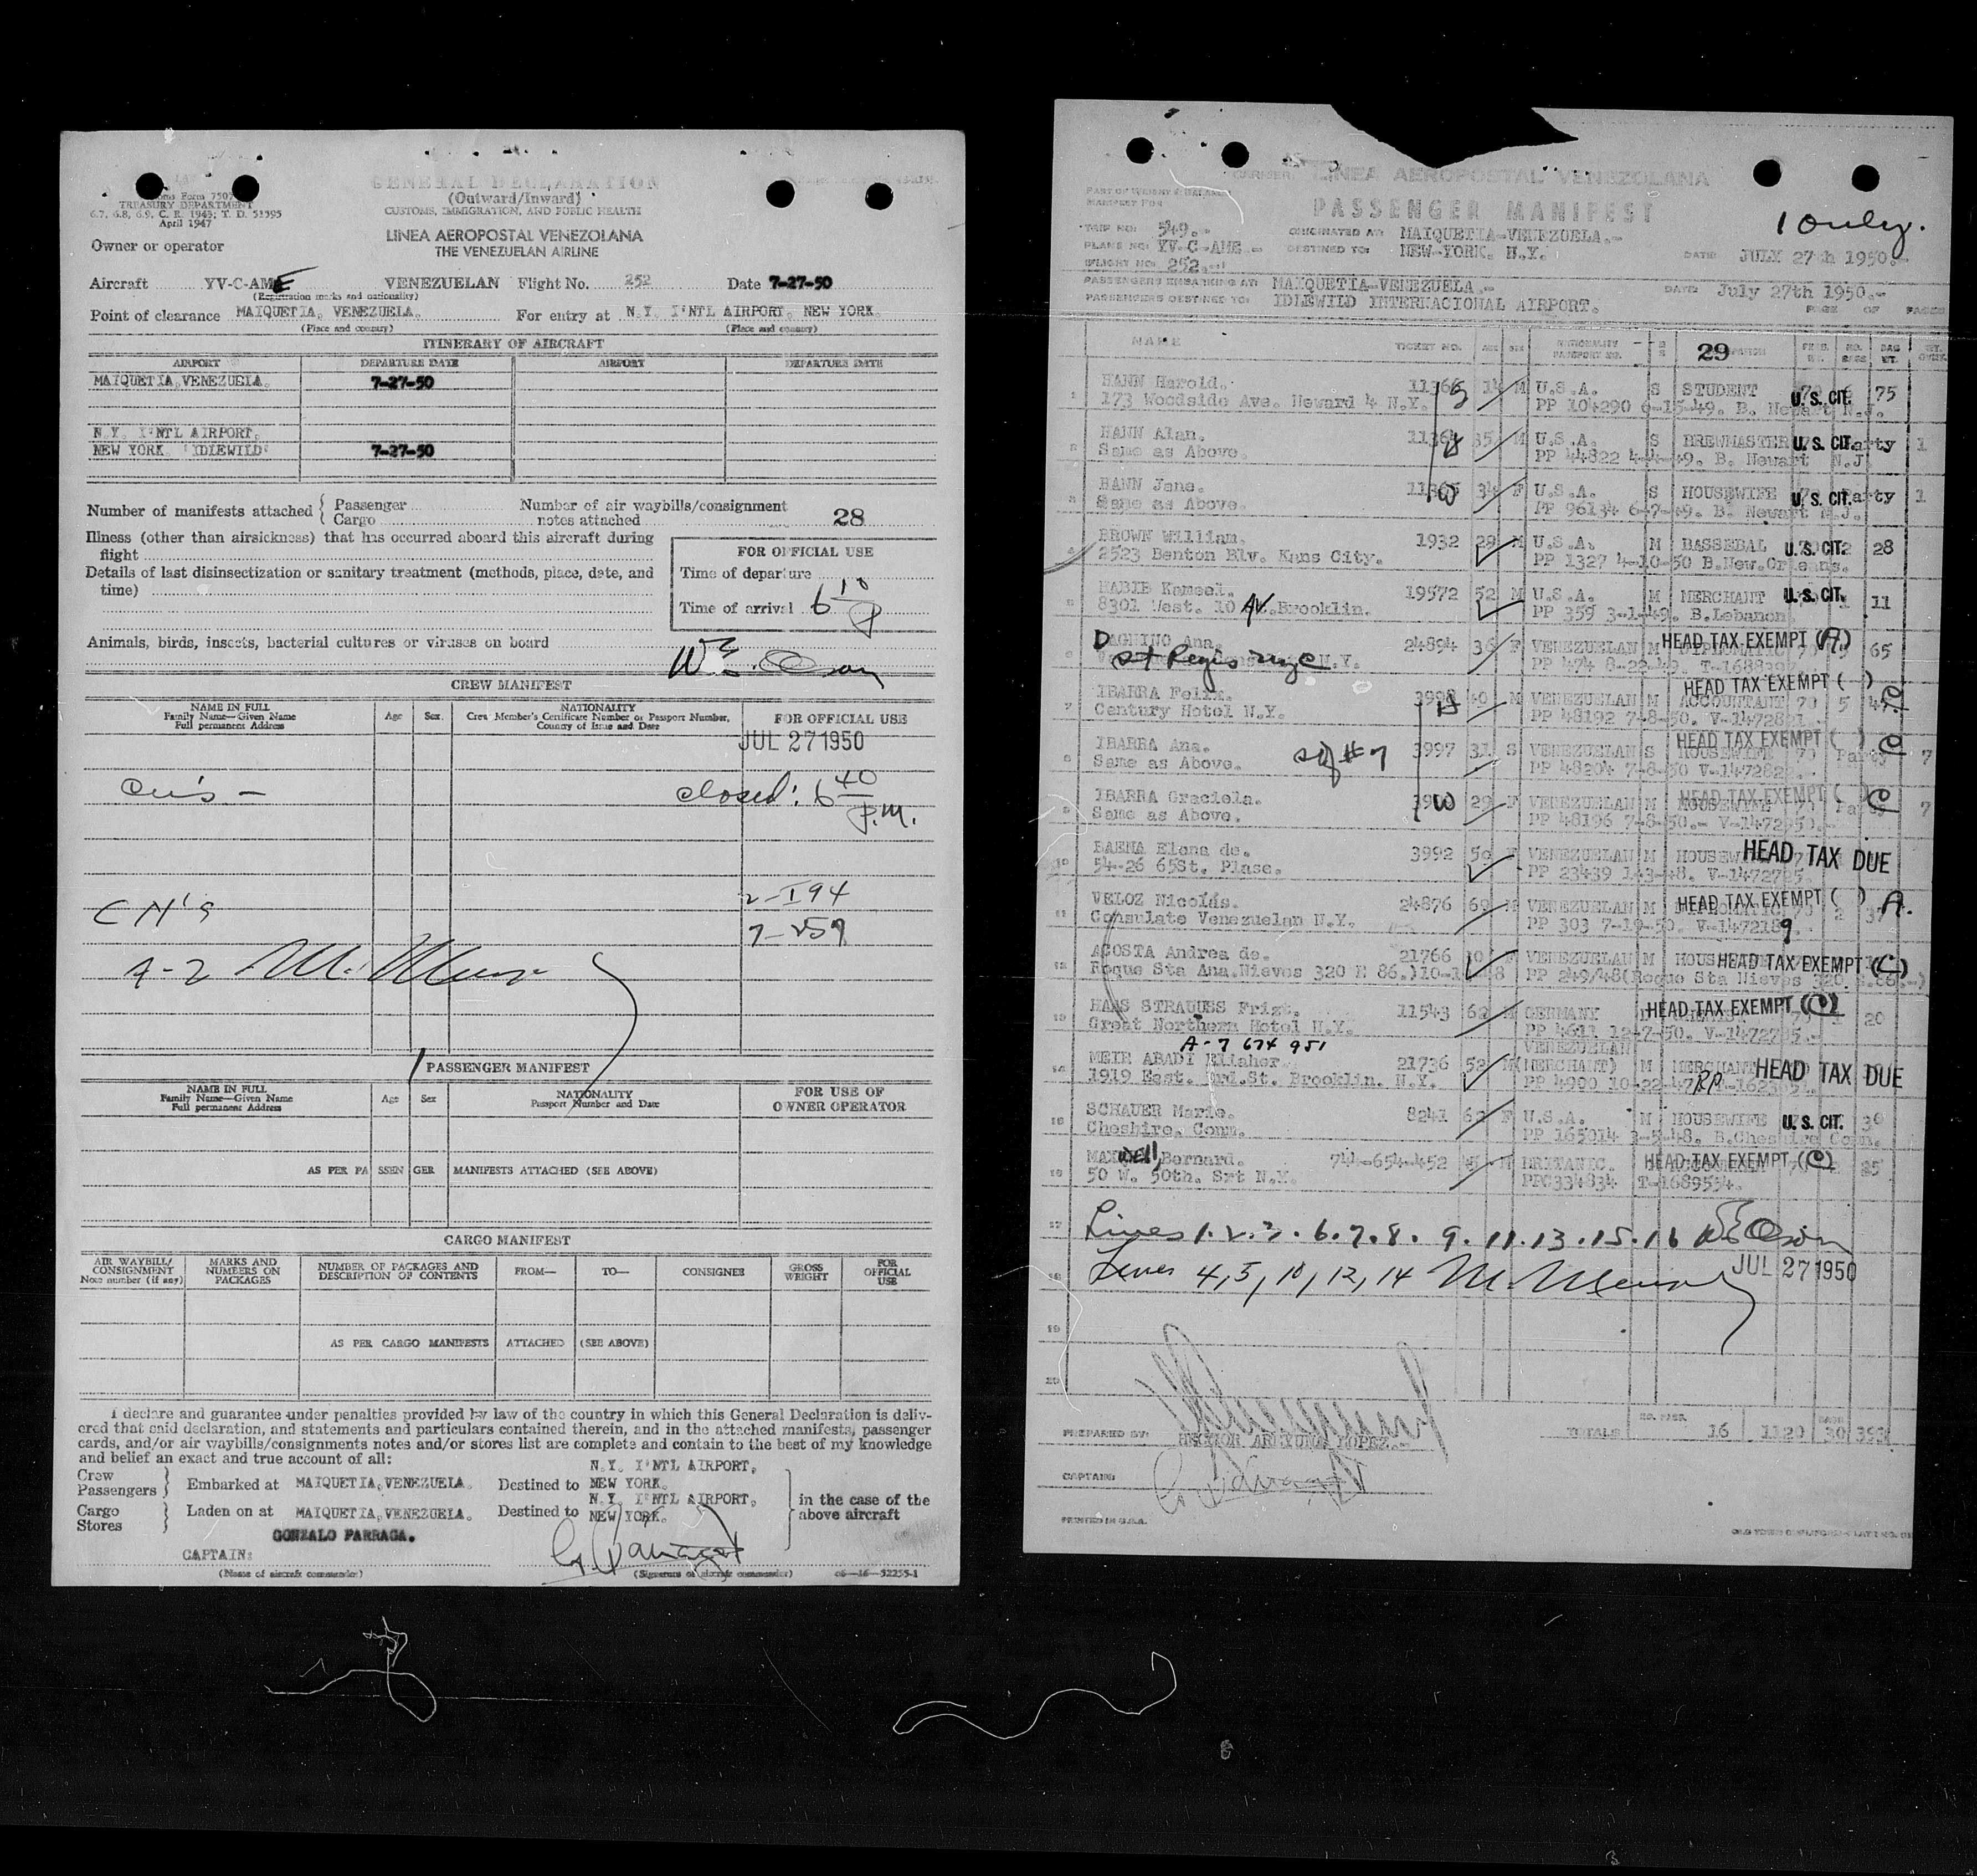 GENERAL DECLARATION
(Outward/Inward)
CUSTOMS, IMMIGRATION, AND PUBLIC HEALTH
Form 7507
TREASURY DEPARTMENT
6.7, 6.8, 6.9, C. R. 1943; T. D. 51595
April 1947
LINEA AEROPOSTAL VENEZOLANA
THE VENEZUELAN AIRLINE
Owner or operator
Aircraft YV-C-AME VENEZUELAN Flight No. 252 Date 7-27-50
(Registration marks and nationality)
Point of clearance MAIQUETIA, VENEZUELA. For entry at N.Y. I'NTL AIRPORT, NEW YORK
(Place and country) (Place and country)
ITINERARY OF AIRCRAFT
AIRPORT DEPARTURE DATE AIRPORT DEPARTURE DATE
MAIQUETIA, VENEZUELA. 7-27-50
N.Y. I'NTL AIRPORT,
NEW YORK 'IDLEWILD' 7-27-50
Number of manifests attached { Passenger
Cargo
Number of air waybills/consignment
notes attached 28
Illness (other than airsickness) that has occurred aboard this aircraft during
flight
Details of last disinsectization or sanitary treatment (methods, place, date, and
time)
FOR OFFICIAL USE
Time of departure
Time of arrival 6 10 P
Animals, birds, insects, bacterial cultures or viruses on board
CREW MANIFEST
NAME IN FULL
Family Name—Given Name
Full permanent Address
Age Sex
NATIONALITY
Crew Member's Certificate Number or Passport Number,
Country of Issue and Date
FOR OFFICIAL USE
JUL 27 1950
closed: 6 40 P.M.
2-I94
7-259
PASSENGER MANIFEST
NAME IN FULL
Family Name—Given Name
Full permanent Address
Age Sex
NATIONALITY
Passport Number and Date
FOR USE OF
OWNER OPERATOR
AS PER PASSENGER MANIFESTS ATTACHED (SEE ABOVE)
CARGO MANIFEST
AIR WAYBILL/
CONSIGNMENT
Note number (if any)
MARKS AND
NUMBERS ON
PACKAGES
NUMBER OF PACKAGES AND
DESCRIPTION OF CONTENTS
FROM— TO— CONSIGNEE
GROSS
WEIGHT
FOR
OFFICIAL
USE
AS PER CARGO MANIFESTS ATTACHED (SEE ABOVE)
I declare and guarantee under penalties provided by law of the country in which this General Declaration is deliv-
ered that said declaration, and statements and particulars contained therein, and in the attached manifests, passenger
cards, and/or air waybills/consignments notes and/or stores list are complete and contain to the best of my knowledge
and belief an exact and true account of all:
Crew
Passengers } Embarked at MAIQUETIA, VENEZUELA. Destined to N.Y. I'NTL AIRPORT, NEW YORK.
Cargo
Stores } Laden on at MAIQUETIA, VENEZUELA. Destined to N.Y. I'NTL AIRPORT, NEW YORK.
in the case of the
above aircraft
GONZALO PARRAGA.
CAPTAIN:
(Name of aircraft commander) (Signature of aircraft commander) 16—52255-1
CARRIER: LINEA AEROPOSTAL VENEZOLANA
PART OF WEIGHT & BALANCE
MANIFEST FOR
PASSENGER MANIFEST
1 only.
TRIP NO: 549.- ORIGINATED AT: MAIQUETIA-VENEZUELA.-
PLANE NO: YV-C-AME.- DESTINED TO: NEW-YORK. N.Y.
FLIGHT NO: 252.- DATE: JULY 27th 1950.-
PASSENGERS EMBARKING AT: MAIQUETIA-VENEZUELA.- DATE: July 27th 1950.-
PASSENGERS DESTINED TO: IDLEWILD INTERNACIONAL AIRPORT. PAGE OF PAGES
NAME TICKET NO. AGE SEX NATIONALITY PASSPORT NO. 29
1 HANN Harold. 11366 14 M U.S.A. S STUDENT U.S. CIT. 75
173 Woodside Ave. Neward 4 N.Y. PP 104290 6-15-49. B. Newart N.J.
2 HANN Alan. 11364 35 M U.S.A. S BREWMASTER U.S. CIT. Party 1
Same as Above. PP 44822 4-4-49. B. Newart N.J.
3 HANN Jane. 11365 34 F U.S.A. S HOUSEWIFE U.S. CIT. Party 1
Same as Above. PP 96134 6-7-49. B. Newart N.J.
4 BROWN William. 1932 29 M U.S.A. M BASSEBAL U.S. CIT. 28
2523 Benton Blv. Kans City. PP 1327 4-10-50 B.New.Orleans.
5 HABIB Kameel. 19572 52 M U.S.A. M MERCHANT U.S. CIT. 11
8301 West. 10 Av. Brooklin. PP 359 3-1-49. B.Lebanon.
6 DAGNINO Ana. 24894 36 F VENEZUELAN M HEAD TAX EXEMPT (A) 65
St Regis nyc N.Y. PP 474 8-22-49. T-1688397
7 IBARRA Felix. 3998 40 M VENEZUELAN M ACCOUNTANT 70 5 HEAD TAX EXEMPT ( ) C
Century Hotel N.Y. PP 48192 7-8-50. V-1472821.-
8 IBARRA Ana. 3997 31 S VENEZUELAN S HOUSEWIFE 70 Party 7 HEAD TAX EXEMPT ( ) C
Same as Above. PP 48204 7-8-50 V-1472822.-
9 IBARRA Graciela. 29 F VENEZUELAN M HOUSEWIFE Party 7 HEAD TAX EXEMPT ( ) C
Same as Above. PP 48196 7-8-50.- V-1472850.-
10 BAENA Elena de. 3992 50 F VENEZUELAN M HOUSEW HEAD TAX DUE
54-26 65St. Plase. PP 23439 1-3-48. V-1472725.
11 VELOZ Nicolás. 24876 69 M VENEZUELAN M HEAD TAX EXEMPT ( ) A. 2 37
Consulate Venezuelan N.Y. PP 303 7-19-50. V-1472189
12 ACOSTA Andrea de. 21766 F VENEZUELAN M HEAD TAX EXEMPT (C)
Roque Sta Ana.Nieves 320 E 86.) PP 249/48(Roque Sta Nieves 320 E.86.-)
13 HAAS STRAUSS Frizt. 11543 62 M GERMANY HEAD TAX EXEMPT (C) 20
Great Northern Hotel N.Y. PP 4611 12-7-50. V-1472785.-
A-7 674 951
14 MEIR ABADI Eliaher. 21736 52 M VENEZUELAN (MERCHANT) M MERCHANT HEAD TAX DUE
1919 East. 3rd.St. Brooklin. N.Y. PP 4900 10-22-47
15 SCHAUER Marie. 8241 62 F U.S.A. M HOUSEWIFE U.S. CIT. 30
Cheshire. Conn. PP 165014 3-5-48. B.Cheshire Conn.
16 MAXWELL, Bernard. 744-654-452 45 M BRITANIC. HEAD TAX EXEMPT (C) 25
50 W. 50th. Srt N.Y. PPC334834 T-1689554.
17 Lines 1.2.3.6.7.8.9.11.13.15.16
18 Lines 4,5,10,12,14 JUL 27 1950
19
20
TOTALS NO. PASS. 16 1120 30 392
PREPARED BY: HECTOR LOPEZ.-
CAPTAIN:
PRINTED IN U.S.A.